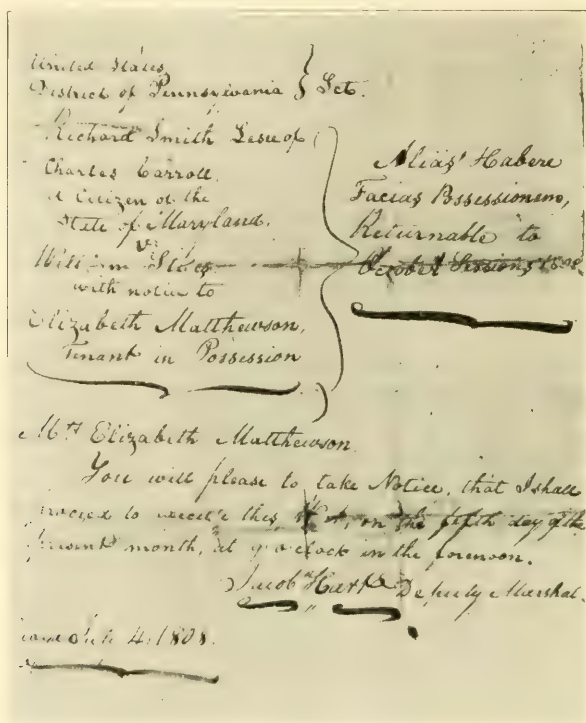 United States
District of Pennsylvania } Sct.
Richard Smith Lesse of
Charles Carroll,
A Citizen of the
State of Maryland.
vs
William Stiles
with notice to
Elizabeth Matthewson,
Tenant in Possession
Alias Habere
Facias Possessionem,
Returnable to
October Sessions 1808.
Mrs Elizabeth Matthewson.
You will please to take Notice, that I shall
proceed to execute this writ, on the fifth day of the
present month, at 9 o'clock in the forenoon.
Jacob Hart Deputy Marshal.
July 4. 1808.